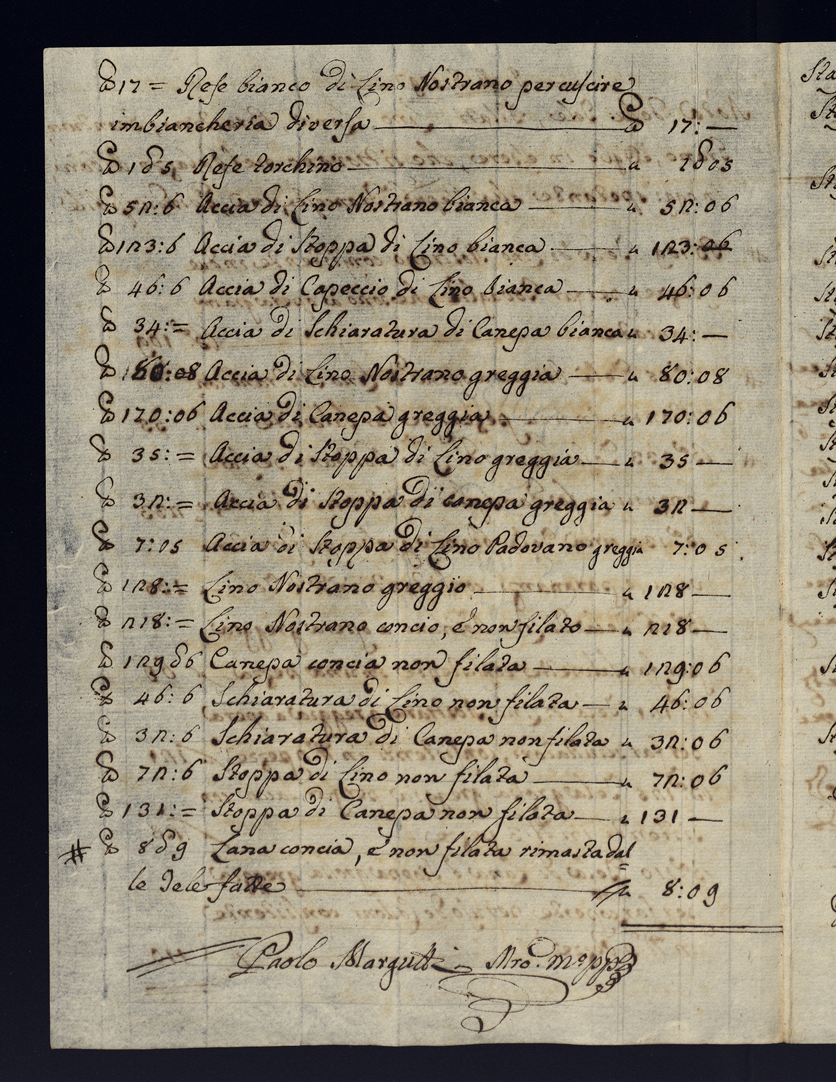 ℔ 17 = Refe bianco di Lino Nostrano per cuscire
imbiancheria diversa ——— ℔ 17: —
℔ 1 ð 5, Refe torchino ——— „ 1 ð 05
℔ 52:6 Accia di Lino Nostrano bianca ——— „ 52:06
℔ 123:6 Accia di Stoppa di Lino bianca ——— „ 123:06
℔ 46:6 Accia di Capeccio di Lino bianca —— „ 46:06
℔ 34:= Accia di Schiaratura di Canepa bianca „ 34: —
℔ 80:08 Accia di Lino Nostrano greggia —— „ 80:08
℔ 170:06 Accia di Canepa greggia ——— „ 170:06
℔ 35:= Accia di Stoppa di Lino greggia —— „ 35 —
℔ 32:= Accia di Stoppa di canepa greggia „ 32 —
℔ 7:05 Accia di Stoppa di Lino Padovano greggia 7:05
℔ 128:= Lino Nostrano greggio ——— „ 128 —
℔ 218:= Lino Nostrano concio, è non filato —— „ 218 —
℔ 129 ð 6 Canepa concia non filata ——— „ 129:06
℔ 46:6 Schiaratura di Lino non filata — „ 46:06
℔ 32:6 Schiaratura di Canepa non filata „ 32:06
℔ 72:6 Stoppa di Lino non filata ——— „ 72:06
℔ 131:= Stoppa di Canepa non filata —— „ 131 —
# ℔ 8 ð 9 Lana concia, è non filata rimasta dal=
le Tele fatte ——— „ 8:09
Paolo Margutti Mro.